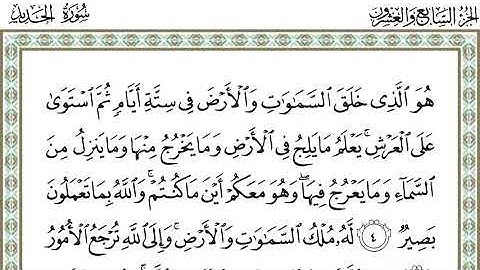 الجزء السابع والعشرون سورة الحديد
هُوَ الَّذِي خَلَقَ السَّمَٰوَٰتِ وَالْأَرْضَ فِي سِتَّةِ أَيَّامٍ ثُمَّ اسْتَوَىٰ
عَلَى الْعَرْشِ ۚ يَعْلَمُ مَا يَلِجُ فِي الْأَرْضِ وَمَا يَخْرُجُ مِنْهَا وَمَا يَنزِلُ مِنَ
السَّمَاءِ وَمَا يَعْرُجُ فِيهَا ۖ وَهُوَ مَعَكُمْ أَيْنَ مَا كُنتُمْ ۚ وَاللَّهُ بِمَا تَعْمَلُونَ
بَصِيرٌ ٤ لَّهُ مُلْكُ السَّمَٰوَٰتِ وَالْأَرْضِ ۚ وَإِلَى اللَّهِ تُرْجَعُ الْأُمُورُ